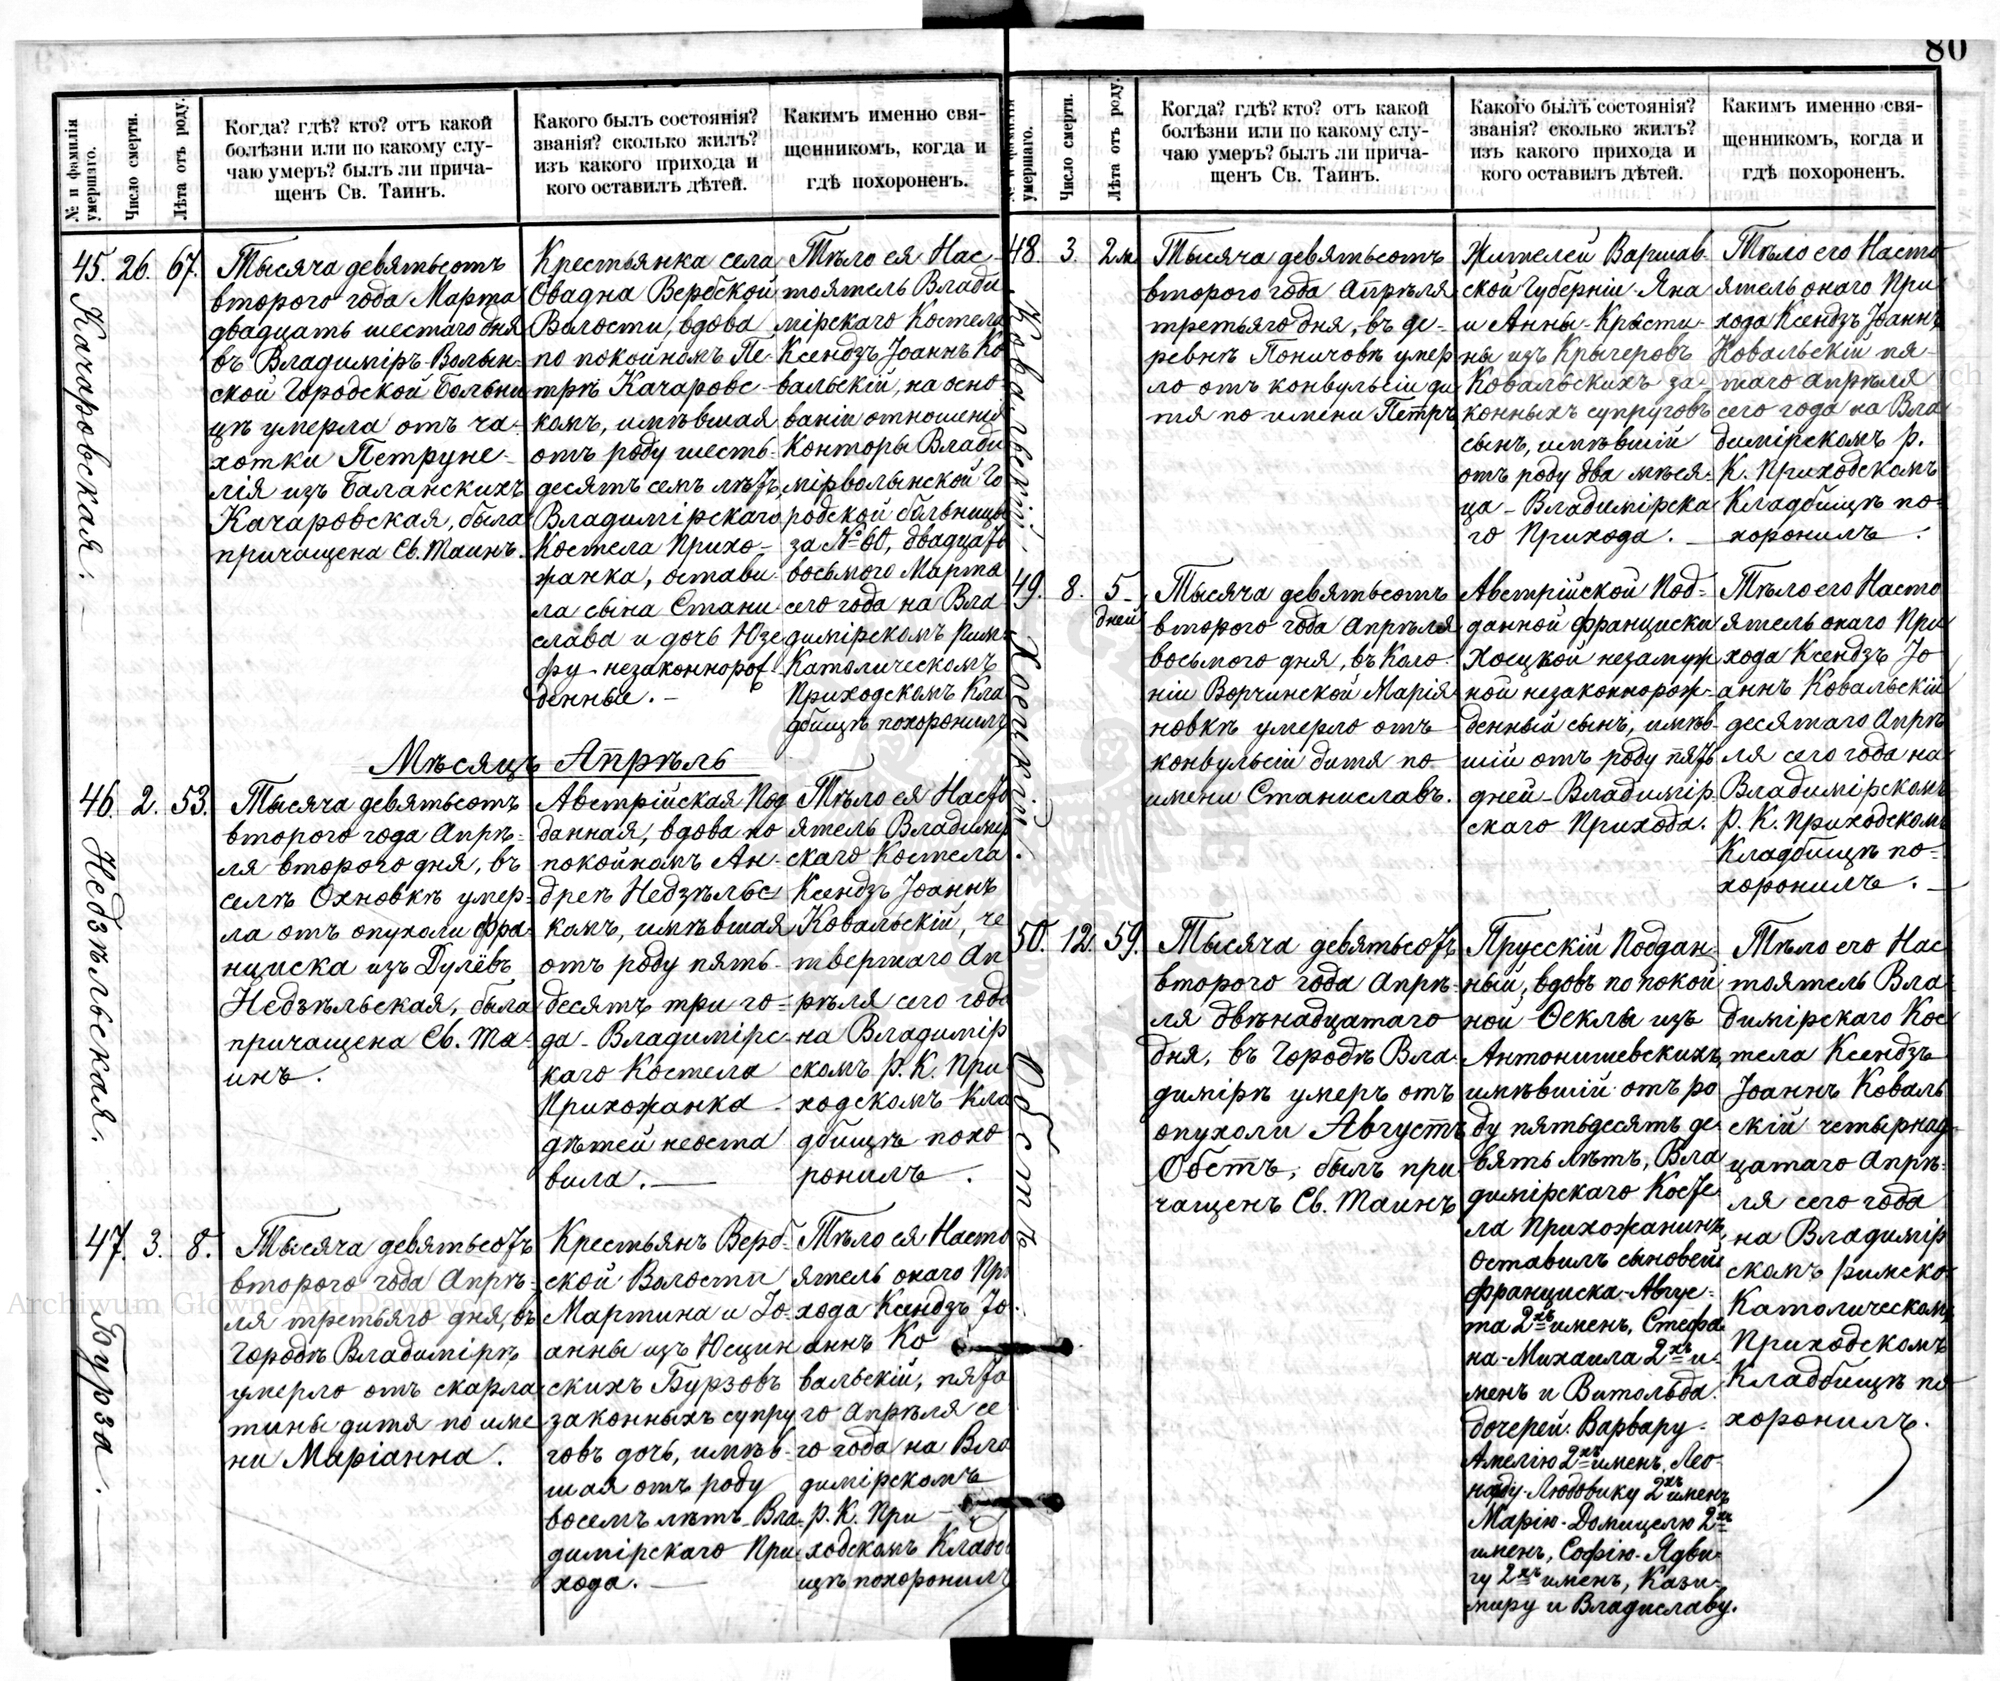 80
№ и фамилія умершаго.
Число смерти.
Лѣта отъ роду.
Когда? гдѣ? кто? отъ какой
болѣзни или по какому слу-
чаю умеръ? былъ ли прича-
щенъ Св. Таинъ.
Какого былъ состоянія?
званія? сколько жилъ?
изъ какого прихода и
кого оставилъ дѣтей.
Какимъ именно свя-
щенникомъ, когда и
гдѣ похороненъ.
45. 26. 67.
Качаровская.
Тысяча девятьсотъ
второго года Марта
двадцать шестаго дня
въ Владимiръ-Волын-
ской Городской больни
цѣ умерла отъ ча-
хотки Петруне-
лія изъ Баланскихъ
Качаровская, была
причащена Св. Таинъ.
Крестьянка села
Овадна Вербской
Волости, вдова
по покойномъ Пе-
трѣ Качаровс-
комъ, имѣвшая
отъ роду шесть-
десятъ семь лѣтъ,
Владимірскаго
Костела Прихо-
жанка, остави-
ла сына Стани-
слава и дочь Юзе
фу незаконнорож
денные.
Тѣло ея Нас-
тоятель Влади
мірскаго Костела
Ксендзъ Іоаннъ Ко
вальскій, на осно-
ваніи отношенія
Конторы Влади
мірволынской Го
родской больницы
за № 60, двадцать
восьмого Марта
сего года на Вла
димірскомъ Рим-
Католическомъ
Приходскомъ Кла
дбищѣ похоронилъ
Мѣсяцъ Апрѣль
46. 2. 53.
Недзѣльская.
Тысяча девятьсотъ
второго года Апрѣ-
ля второго дня, въ
селѣ Охновкѣ умер-
ла отъ опухоли Фра-
нциска изъ Дулёвъ
Недзѣльская, была
причащена Св. Та-
инъ.
Австрійская Под
данная, вдова по
покойномъ Ан-
дреѣ Недзѣльс
комъ, имѣвшая
отъ роду пять-
десятъ три го-
да - Владимірс-
каго Костела
Прихожанка.
дѣтей неоста
вила.
Тѣло ея Насто
ятель Владимір
скаго Костела
Ксендзъ Іоаннъ
Ковальскій, че
твертаго Ап
рѣля сего года
на Владимір
скомъ Р. К. При
ходскомъ Кла
дбищѣ похо
ронилъ.
47. 3. 8.
Бурза.
Тысяча девятьсотъ
второго года Апрѣ-
ля третьяго дня, въ
Городѣ Владимірѣ
умерло отъ скарла
тины дитя по име
ни Маріанна.
Крестьянъ Верб-
ской Волости
Мартина и Іо-
анны изъ Юсцин
скихъ Бурзовъ
законныхъ супру
говъ дочь, имѣв-
шая отъ роду
восемь лѣтъ - Вла-
димірскаго При
хода.
Тѣло ея Насто
ятель онаго При
хода Ксендзъ Іо-
аннъ Ко
вальскій, пята
го Апрѣля се
го года на Вла
димірскомъ
Р. К. При
ходскомъ Кладб
ищѣ похоронилъ
№ и фамилія умершаго.
Число смерти.
Лѣта отъ роду.
Когда? гдѣ? кто? отъ какой
болѣзни или по какому слу-
чаю умеръ? былъ ли прича-
щенъ Св. Таинъ.
Какого былъ состоянія?
званія? сколько жилъ?
изъ какого прихода и
кого оставилъ дѣтей.
Какимъ именно свя-
щенникомъ, когда и
гдѣ похороненъ.
48. 3. 2 м.
Ковальскій.
Тысяча девятьсотъ
второго года Апрѣля
третьяго дня, въ де-
ревнѣ Поничовѣ умер
ло отъ конвульсіи ди
тя по имени Петръ
Жителей Варшав-
ской Губерніи Яна
и Анны-Крысти-
ны изъ Крыгеровъ
Ковальскихъ за-
конныхъ супруговъ
сынъ, имѣвшій
отъ роду два мѣся-
ца - Владимірска
го Прихода.
Тѣло его Насто
ятель онаго При
хода Ксендзъ Іоаннъ
Ковальскій пя-
таго Апрѣля
сего года на Вла
димірскомъ Р.
К. Приходскомъ
Кладбищѣ по-
хоронилъ.
49. 8. 5
дней
Хоецкій.
Тысяча девятьсотъ
второго года Апрѣля
восьмого дня, въ Коло-
ніи Ворчинской Марія
новкѣ умерло отъ
конвульсіи дитя по
имени Станиславъ.
Австрійской Под-
данной Франциски
Хоецкой незамуж
ной незаконнорож-
денный сынъ, имѣв-
шій отъ роду пять
дней - Владимір-
скаго Прихода.
Тѣло его Насто
ятель онаго При
хода Ксендзъ Іо
аннъ Ковальскій
десятаго Апрѣ
ля сего года на
Владимірскомъ
Р. К. Приходскомъ
Кладбищѣ по-
хоронилъ.
50. 12. 59.
Обстъ.
Тысяча девятьсотъ
второго года Апрѣ-
ля двѣнадцатаго
дня, въ Городѣ Вла-
димірѣ умеръ отъ
опухоли Августъ
Обстъ, былъ при
чащенъ Св. Таинъ
Прусскій Поддан
ный, вдовъ по покой
ной Ѳеклы изъ
Антонишевскихъ,
имѣвшій отъ ро
ду пятьдесятъ де-
вять лѣтъ, Вла
димірскаго Косте
ла Прихожанинъ,
Оставилъ сыновей
Франциска-Авгус-
та 2хъ именъ, Стефа
на-Михаила 2хъ и-
менъ и Витольда.
дочерей: Варвару-
Амелію 2хъ именъ, Лео-
кадію-Людовику 2хъ именъ
Марію-Домицелю 2хъ
именъ, Софію-Ядви-
гу 2хъ именъ, Кази-
миру и Владиславу.
Тѣло его Нас
тоятель Вла-
димірскаго Кос
тела Ксендзъ
Іоаннъ Коваль
скій четырнад-
цатаго Апрѣ-
ля сего года
на Владимір
скомъ римско-
Католическомъ
Приходскомъ
Кладбищѣ по
хоронилъ.
Archiwum Główne Akt Dawnych